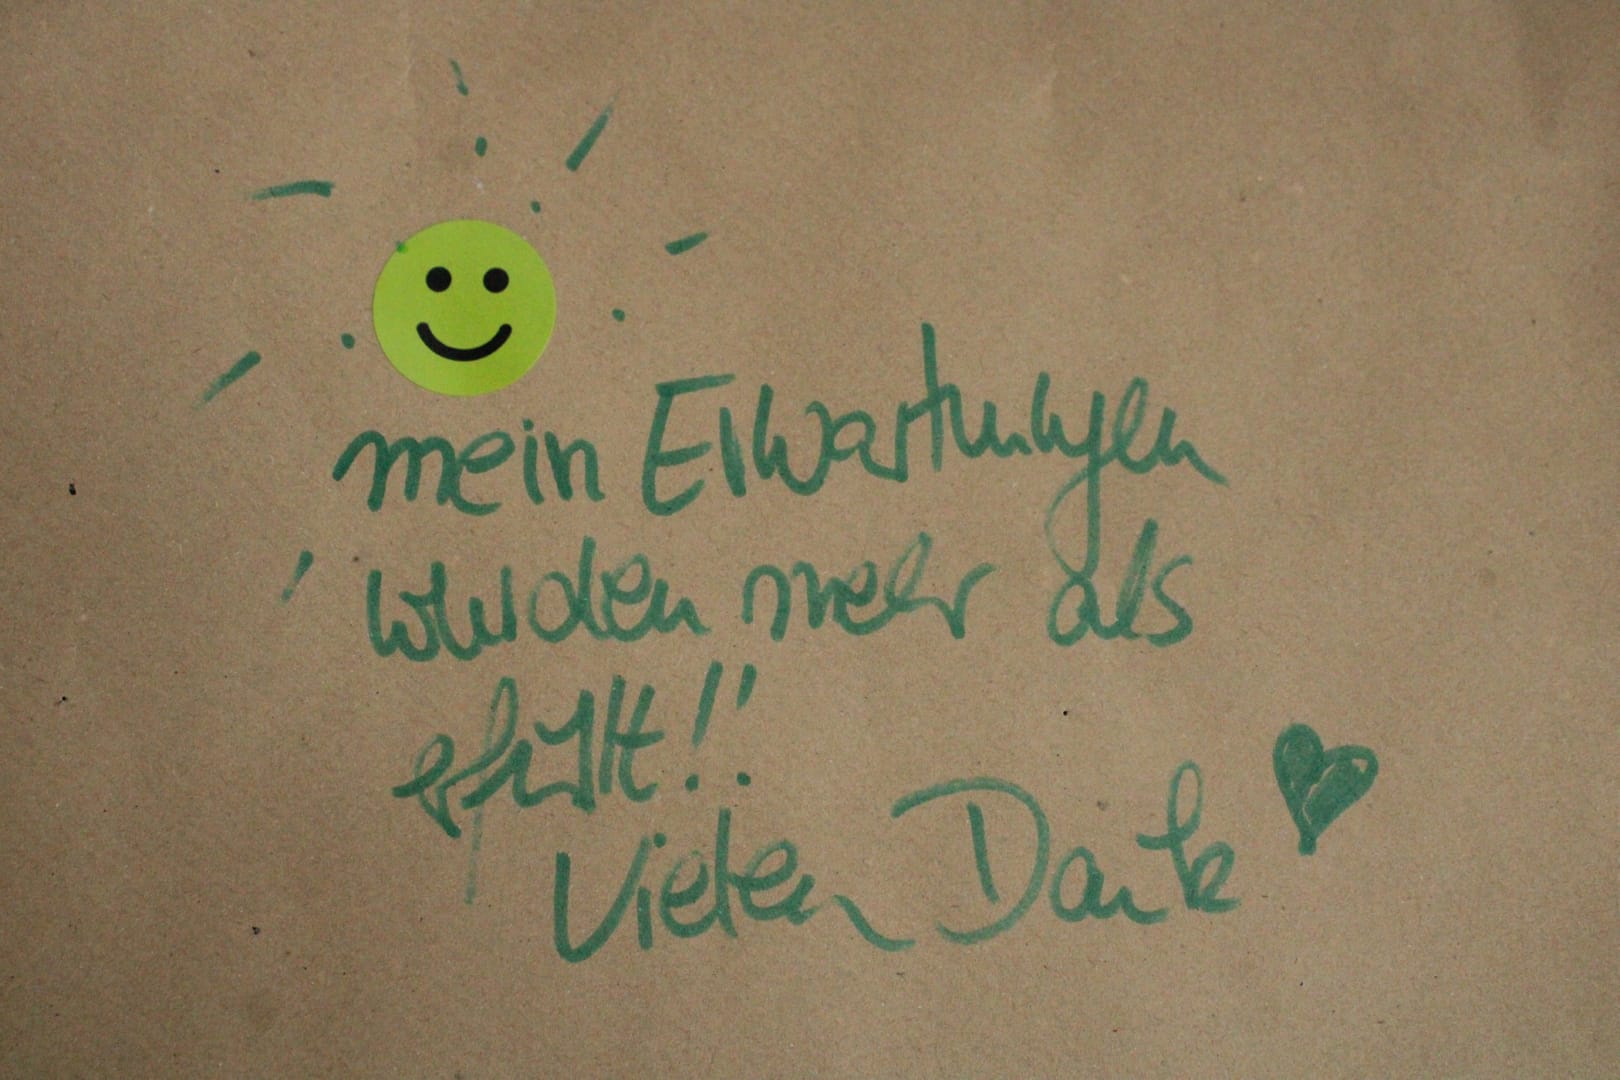 mein Erwartungen
wurden mehr als
erfüllt!!
Vielen Dank